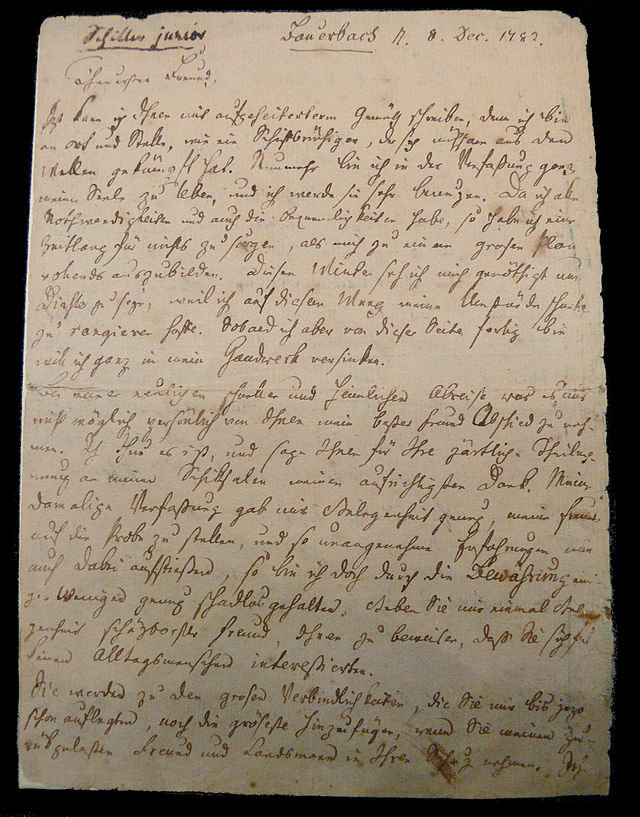 Schiller junior
Bauerbach d. 8. Dec. 1782.
Theurester Freund,
Jezt kann ich Ihnen mit aufgeheitertem Gemüth schreiben, denn ich bin
an Ort und Stelle, wie ein Schiffbrüchiger, der sich mühsam aus den
Wellen gekämpft hat. Nunmehr bin ich in der Verfassung ganz
meiner Seele zu leben, und ich werde sie sehr benuzen. Da ich alle
Nothwendigkeiten und auch die Bequemlichkeiten habe, so hab ich eine
Zeitlang für nichts zu sorgen, als mich zu einem großen Plan
vollends auszubilden. Diesen Winter seh ich mich genöthigt nur
Dichter zu seyn, weil ich auf diesem Weeg meine Umstände schneller
zu rangieren hoffe. Sobald ich aber von dieser Seite fertig bin
will ich ganz in mein Handwerk versinken.
Bei meiner neulichen schnellen und heimlichen Abreise war es mir
nicht möglich persönlich von Ihnen mein bester Freund Abschied zu neh-
men. Ich thue es izt, und sage Ihnen für Ihre zärtliche Theilneh-
mung an meinen Schiksalen meinen aufrichtigsten Dank. Meine
damalige Verfassung gab mir Gelegenheit genug, meine Freunde
auf die Probe zu stellen, und so unangenehme Erfahrungen mir
auch dabei aufstießen, so bin ich doch durch die Bewährung ein
ger Weniger genug schadlos gehalten. Geben Sie mir einmal Gele-
genheit schäzbarster Freund, Ihnen zu beweisen, daß Sie sich für
keinen Alltagsmenschen interessierten.
Sie werden zu den großen Verbindlichkeiten, die Sie mir bis jezo
schon auflegten, noch die gröseste hinzufügen, wenn Sie meinen zu-
rükgelaßen Freund und Landsmann in Ihren Schuz nehmen. Ich